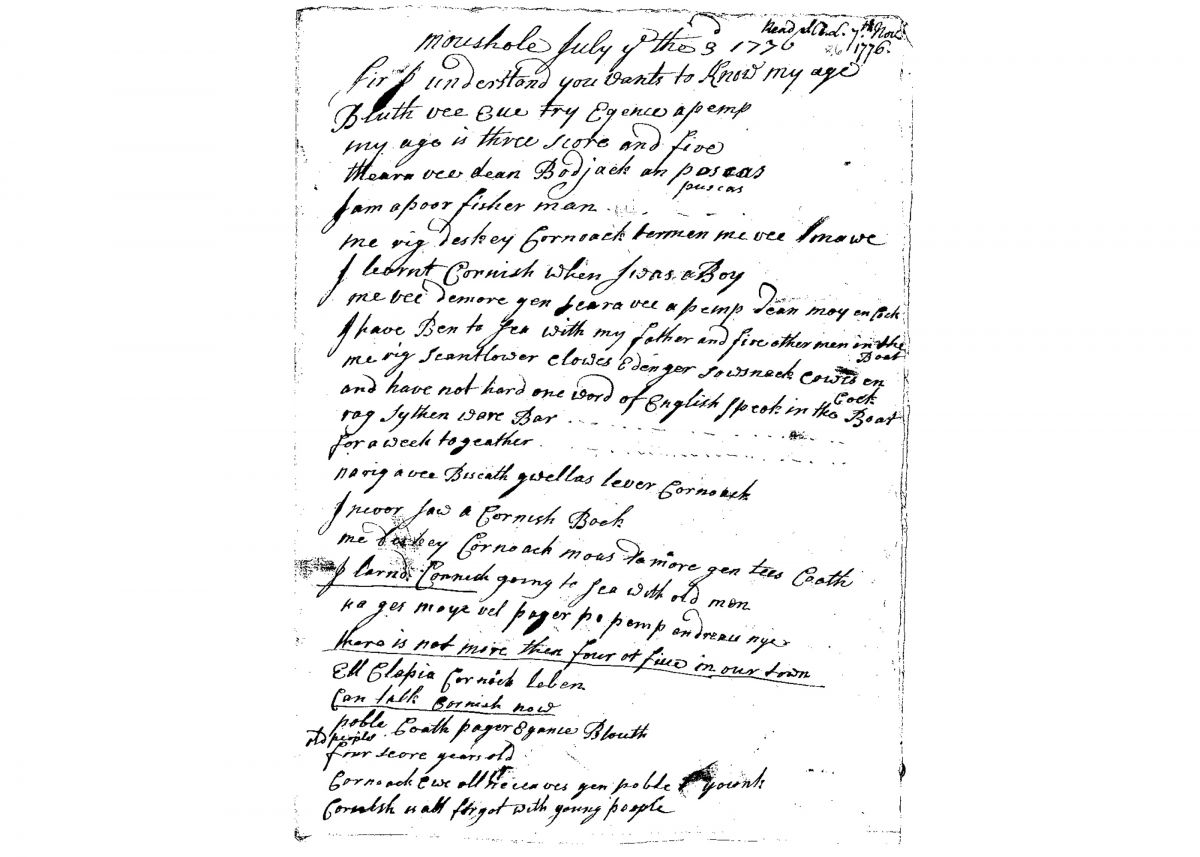 moushole July ye the 3d 1776
Read at S.A.L. 7th Nov. 1776.
Sir I understand you wants to Know my age
Bluth vee Eue try Egence a pemp
my age is three score and five
theara vee dean Bodjack an poscas
puscas
I am a poor fisher man
me rig deskey Cornoack termen me vee mawe
I learnt Cornish when I was a Boy
me vee demore gen seara vee a pemp dean moy en Cock
I have Ben to sea with my father and five other men in the Boat
me rig scantlower clowes Edenger sowsnack Cowes en Cock
and have not hard one word of English speok in the Boat
rag sythen ware Bar
for a week togeather
na rig a vee Biscath gwellas lever Cornoack
I nevor saw a Cornish Book
me deskey Cornoack moas da more gen tees Coath
I larnd Cornish going to sea with old men
na ges moye vel pager po pemp en dreau nye
there is not more then four or five in our town
Ell Clapia Cornoack leben
Can talk Cornish now
poble Coath pager Egance Blouth
old people four score years old
Cornoack ewe all neceaves gen poble younk
Cornish is all forgot with young people